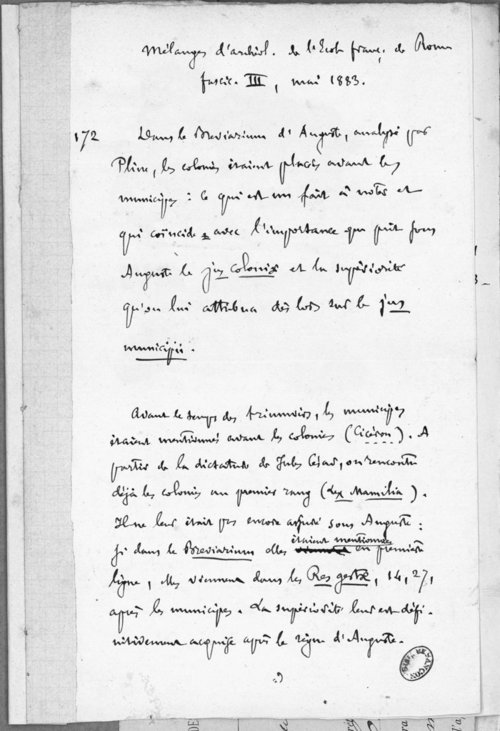 Mélanges d'archéol. de l'Ecole franç. de Rome
fascic. III, mai 1883.
172 Dans le Breviarium d'Auguste, analysé par
Pline, les colonies étaient placées avant les
municipes : ce qui est un fait à noter et
qui coïncide avec l'importance que prit sous
Auguste le jus coloniæ et la supériorité
qu'on lui attribua dès lors sur le jus
municipii.
Avant le temps des triumvirs, les municipes
étaient mentionnés avant les colonies (Cicéron). A
partir de la dictature de Jules César, on rencontre
déjà les colonies au premier rang (Lex Mamilia).
Il ne leur était pas encore assuré sous Auguste :
si dans le Breviarium elles étaient mentionnées en première
ligne, elles viennent dans les Res gestæ, 14, 27,
après les municipes. La supériorité leur est défi-
nitivement acquise après le règne d'Auguste.